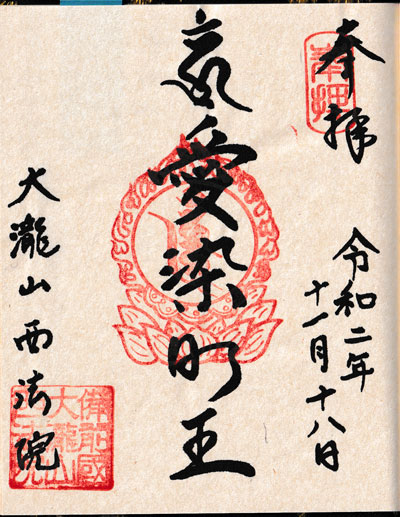 奉拝
奉拝
令和二年
十一月十八日
愛染明王
大瀧山西法院
備前國
大瀧山